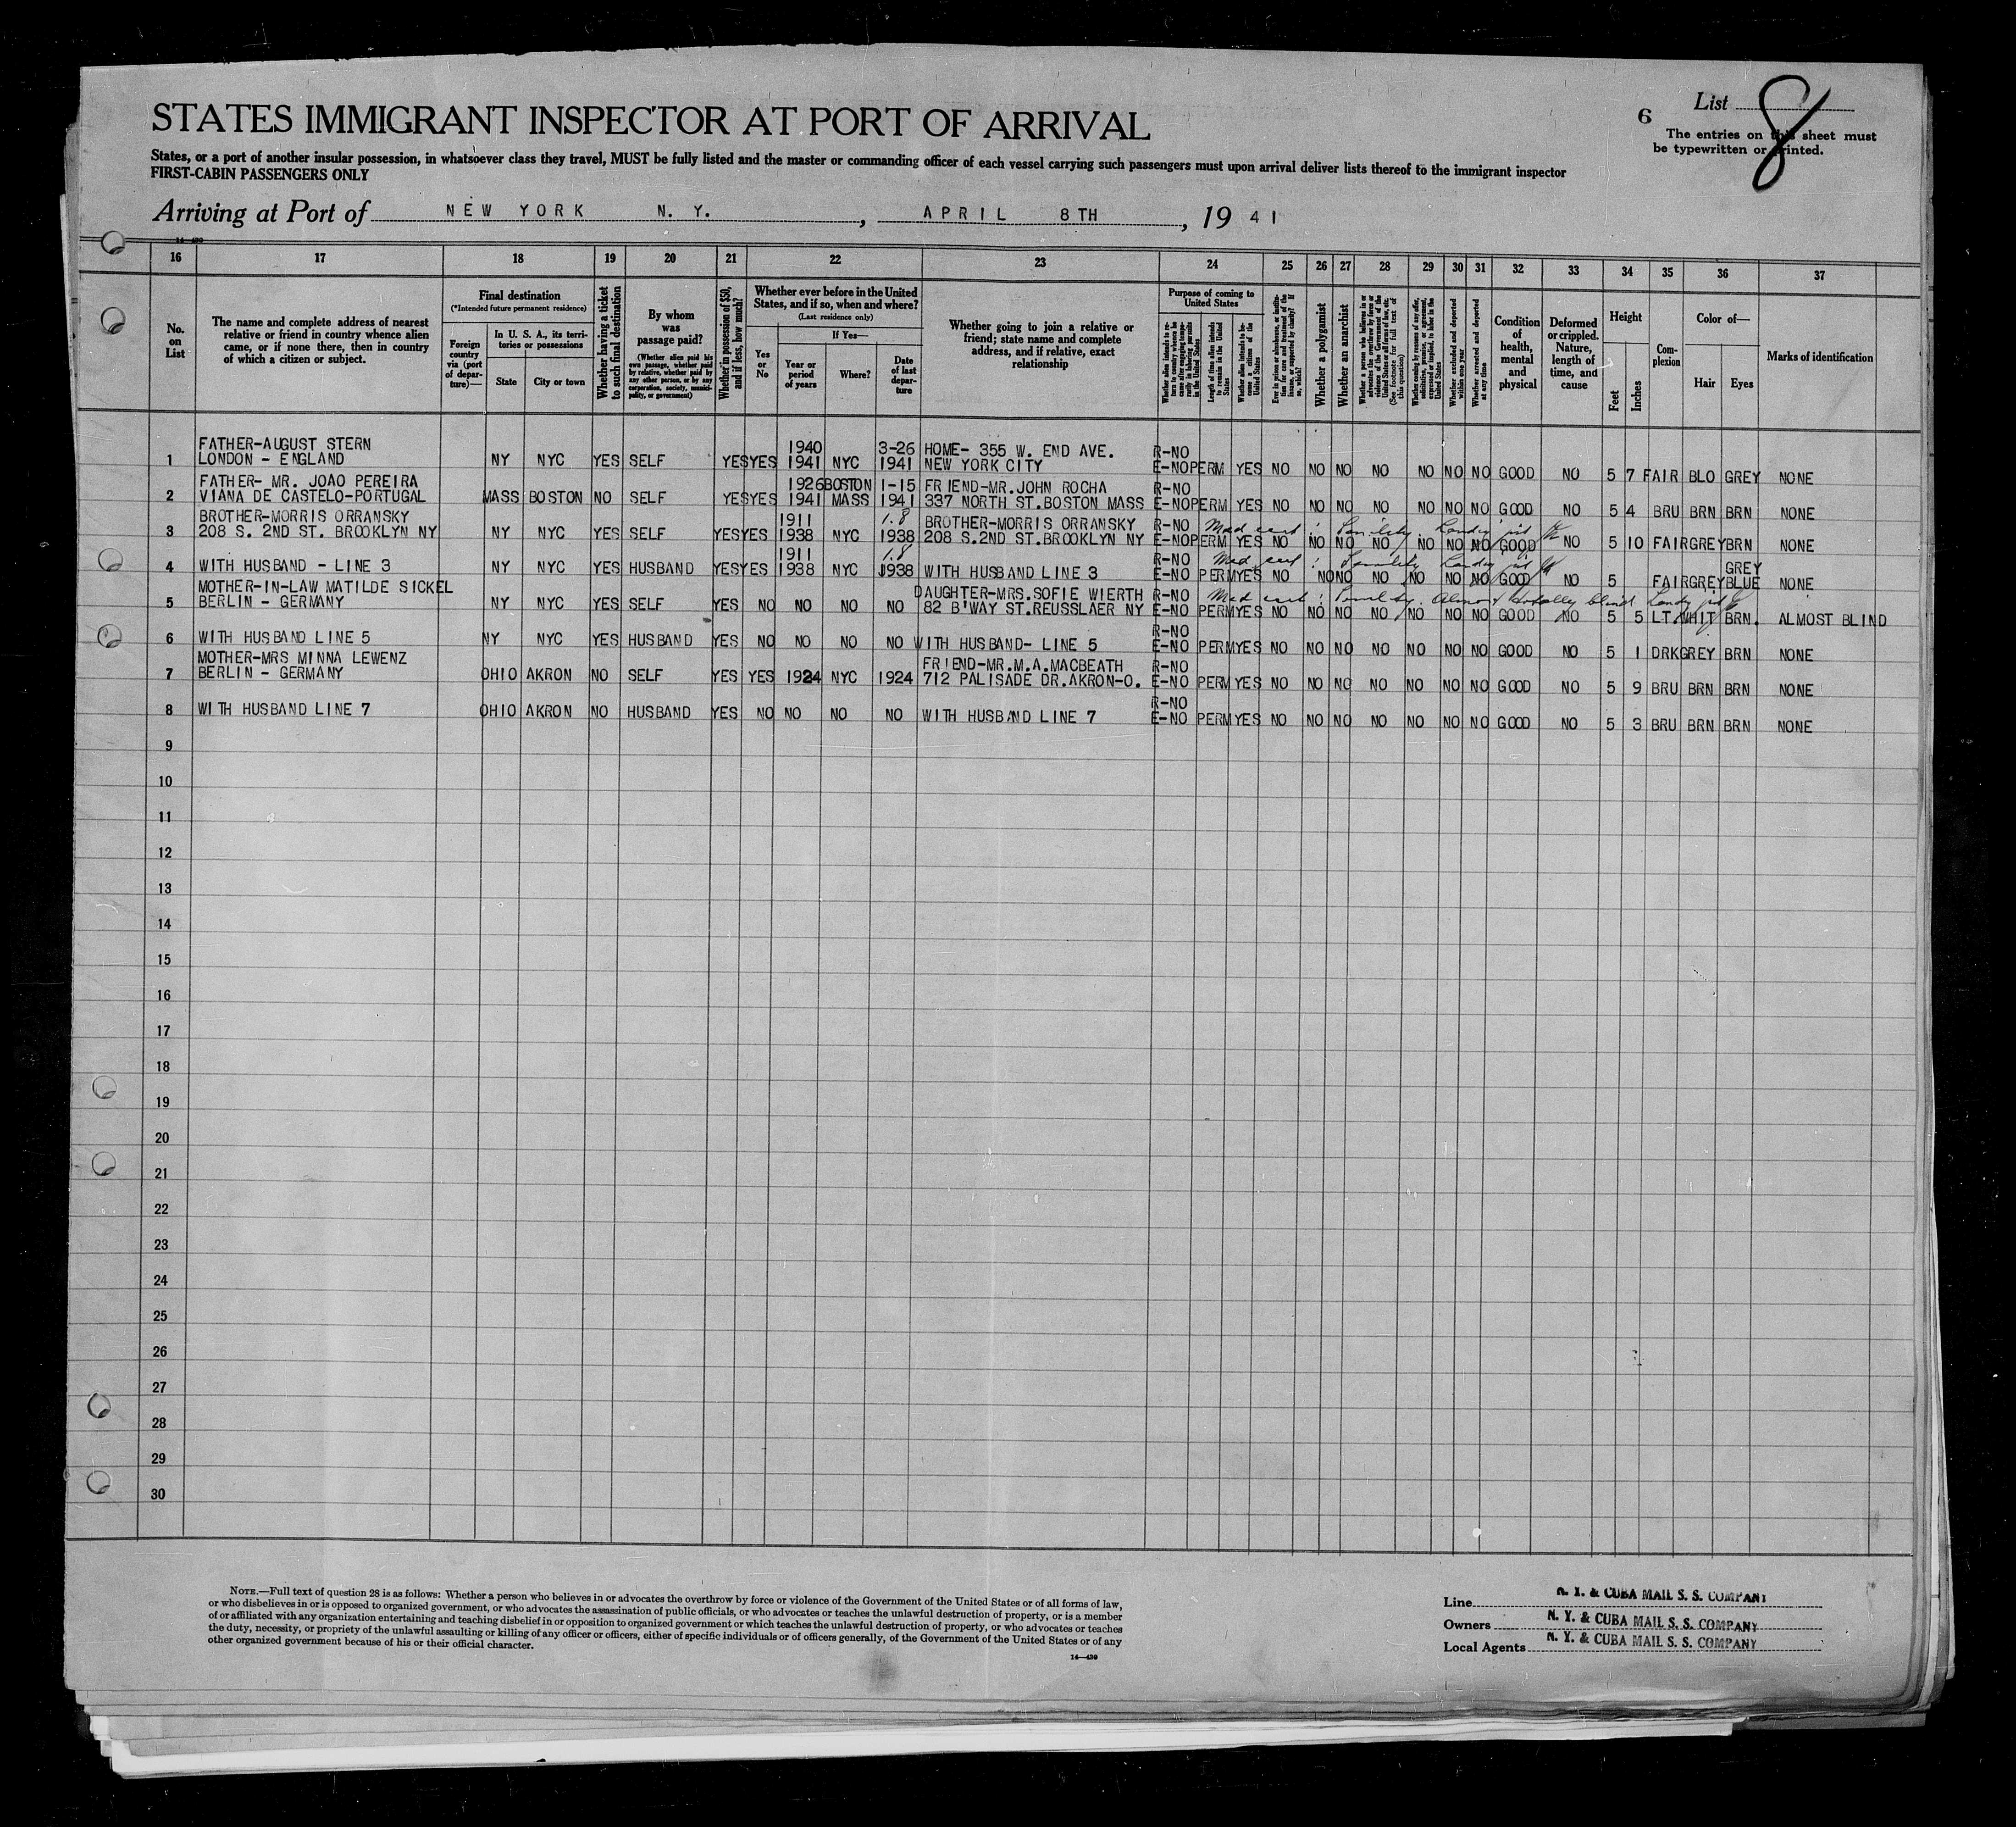 STATES IMMIGRANT INSPECTOR AT PORT OF ARRIVAL
6 List 8
The entries on this sheet must
be typewritten or printed.
States, or a port of another insular possession, in whatsoever class they travel, MUST be fully listed and the master or commanding officer of each vessel carrying such passengers must upon arrival deliver lists thereof to the immigrant inspector
FIRST-CABIN PASSENGERS ONLY
Arriving at Port of NEW YORK N. Y., APRIL 8TH, 19 41
14—430
16 17 18 19 20 21 22 23 24 25 26 27 28 29 30 31 32 33 34 35 36 37
No. on List
The name and complete address of nearest relative or friend in country whence alien came, or if none there, then in country of which a citizen or subject.
Final destination
(*Intended future permanent residence)
Foreign country via (port of departure)—
In U. S. A., its territories or possessions
State City or town
Whether having a ticket to such final destination
By whom was passage paid?
(Whether alien paid his own passage, whether paid by relative, whether paid by any other person, or by any corporation, society, municipality, or government)
Whether in possession of $50, and if less, how much?
Whether ever before in the United States, and if so, when and where?
(Last residence only)
Yes or No
If Yes—
Year or period of years Where? Date of last departure
Whether going to join a relative or friend; state name and complete address, and if relative, exact relationship
Purpose of coming to United States
Length of time alien intends to remain in the United States
Whether alien intends to become a citizen of the United States
Whether a polygamist
Whether an anarchist
Whether excluded and deported within one year
Whether arrested and deported at any time
Condition of health, mental and physical
Deformed or crippled. Nature, length of time, and cause
Height
Feet Inches
Complexion
Color of—
Hair Eyes
Marks of identification
1 FATHER-AUGUST STERN 1940 3-26 HOME- 355 W. END AVE. R-NO
LONDON - ENGLAND NY NYC YES SELF YES YES 1941 NYC 1941 NEW YORK CITY E-NO PERM YES NO NO NO NO NO NO NO GOOD NO 5 7 FAIR BLO GREY NONE
2 FATHER- MR. JOAO PEREIRA 1926 BOSTON 1-15 FRIEND-MR.JOHN ROCHA R-NO
VIANA DE CASTELO-PORTUGAL MASS BOSTON NO SELF YES YES 1941 MASS 1941 337 NORTH ST.BOSTON MASS E-NO PERM YES NO NO NO NO NO NO NO GOOD NO 5 4 BRU BRN BRN NONE
3 BROTHER-MORRIS ORRANSKY 1911 1.8 BROTHER-MORRIS ORRANSKY R-NO Med cert: Senility
208 S. 2ND ST. BROOKLYN NY NY NYC YES SELF YES YES 1938 NYC 1938 208 S.2ND ST.BROOKLYN NY E-NO PERM YES NO NO NO NO NO NO NO GOOD NO 5 10 FAIR GREY BRN NONE
4 1911 1.8 R-NO Med cert: Senility GREY
WITH HUSBAND - LINE 3 NY NYC YES HUSBAND YES YES 1938 NYC 1938 WITH HUSBAND LINE 3 E-NO PERM YES NO NO NO NO NO NO NO GOOD NO 5 FAIR GREY BLUE NONE
5 MOTHER-IN-LAW MATILDE SICKEL DAUGHTER-MRS.SOFIE WIERTH R-NO Med cert: Senility. Almost totally blind
BERLIN - GERMANY NY NYC YES SELF YES NO NO NO NO 82 B'WAY ST.REUSSLAER NY E-NO PERM YES NO NO NO NO NO NO NO GOOD NO 5 5 LT. WHIT BRN. ALMOST BLIND
6 R-NO
WITH HUSBAND LINE 5 NY NYC YES HUSBAND YES NO NO NO NO WITH HUSBAND- LINE 5 E-NO PERM YES NO NO NO NO NO NO NO GOOD NO 5 1 DRK GREY BRN NONE
7 MOTHER-MRS MINNA LEWENZ FRIEND-MR.M.A.MACBEATH R-NO
BERLIN - GERMANY OHIO AKRON NO SELF YES YES 1924 NYC 1924 712 PALISADE DR.AKRON-O. E-NO PERM YES NO NO NO NO NO NO NO GOOD NO 5 9 BRU BRN BRN NONE
8 R-NO
WITH HUSBAND LINE 7 OHIO AKRON NO HUSBAND YES NO NO NO NO WITH HUSBAND LINE 7 E-NO PERM YES NO NO NO NO NO NO NO GOOD NO 5 3 BRU BRN BRN NONE
9
10
11
12
13
14
15
16
17
18
19
20
21
22
23
24
25
26
27
28
29
30
NOTE.—Full text of question 28 is as follows: Whether a person who believes in or advocates the overthrow by force or violence of the Government of the United States or of all forms of law,
or who disbelieves in or is opposed to organized government, or who advocates the assassination of public officials, or who advocates or teaches the unlawful destruction of property, or is a member
of or affiliated with any organization entertaining and teaching disbelief in or opposition to organized government or which teaches the unlawful destruction of property, or who advocates or teaches
the duty, necessity, or propriety of the unlawful assaulting or killing of any officer or officers, either of specific individuals or of officers generally, of the Government of the United States or of any
other organized government because of his or their official character.
14—430
Line N. Y. & CUBA MAIL S. S. COMPANY
Owners N. Y. & CUBA MAIL S. S. COMPANY
Local Agents N. Y. & CUBA MAIL S. S. COMPANY